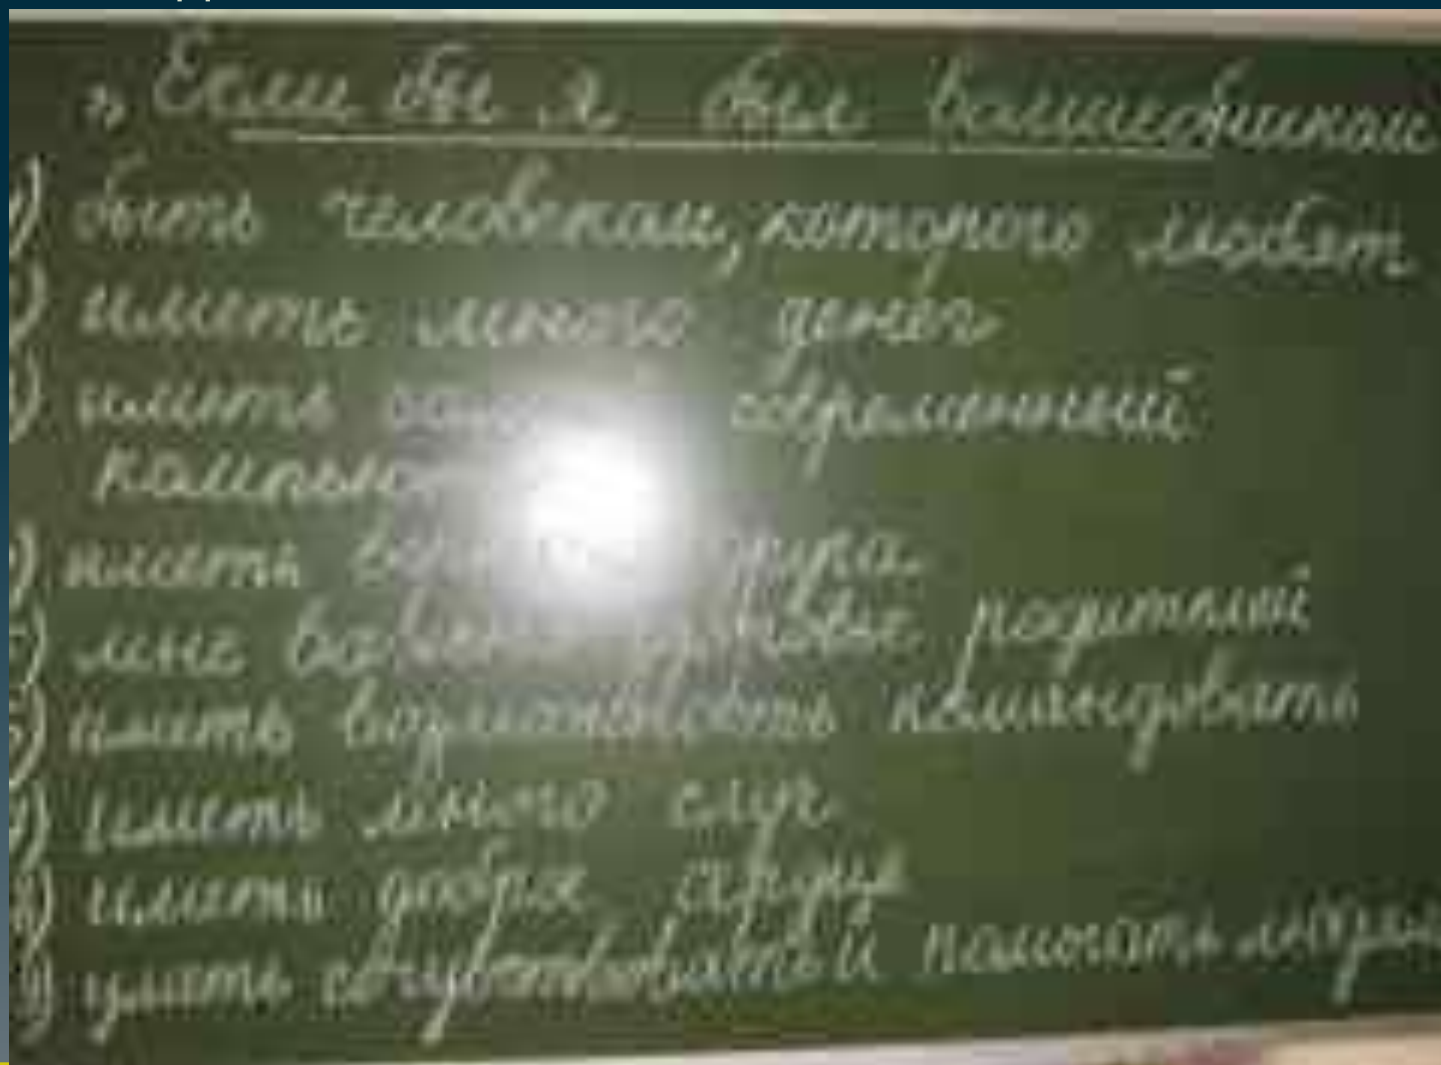 „Если бы я был волшебником
1) быть человеком, которого любят
2) иметь много денег
3) иметь самый современный
компьют
иметь друга
5) мне важно здоровье родителей
6) иметь возможность командовать
7) иметь много слуг
8) иметь доброе сердце
9) уметь сочувствовать и помогать людям